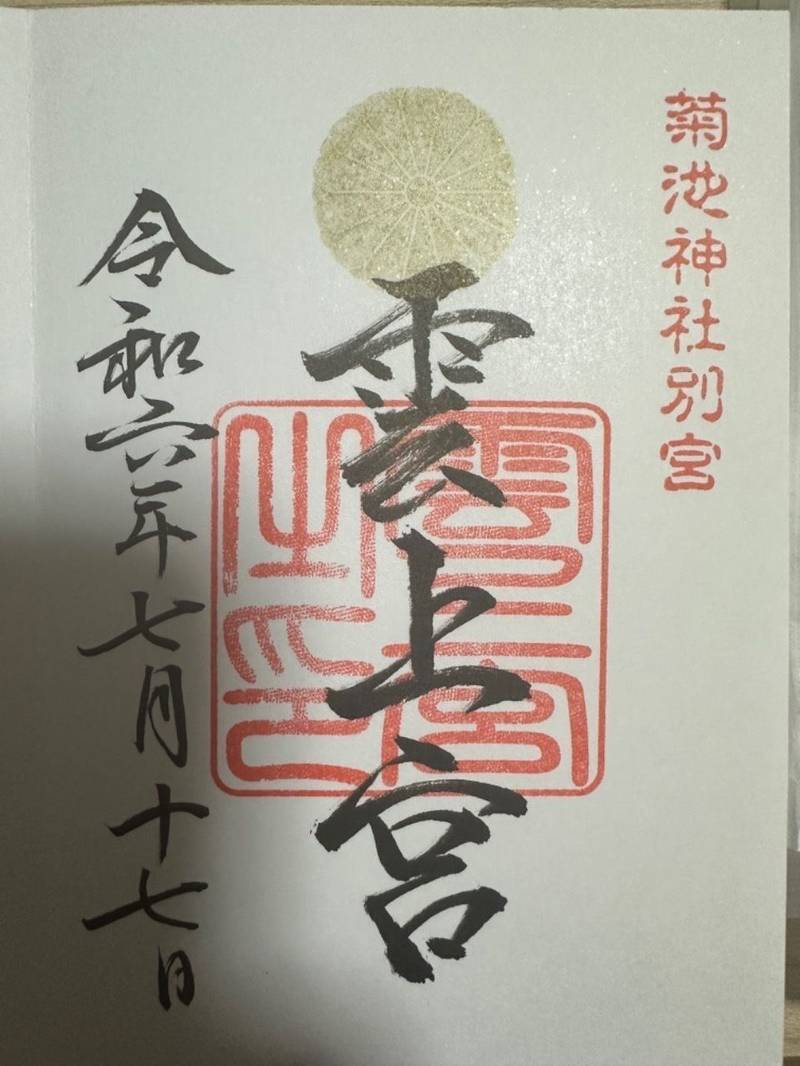 菊池神社別宮
雲上宮
雲上宮之印
令和六年七月十七日